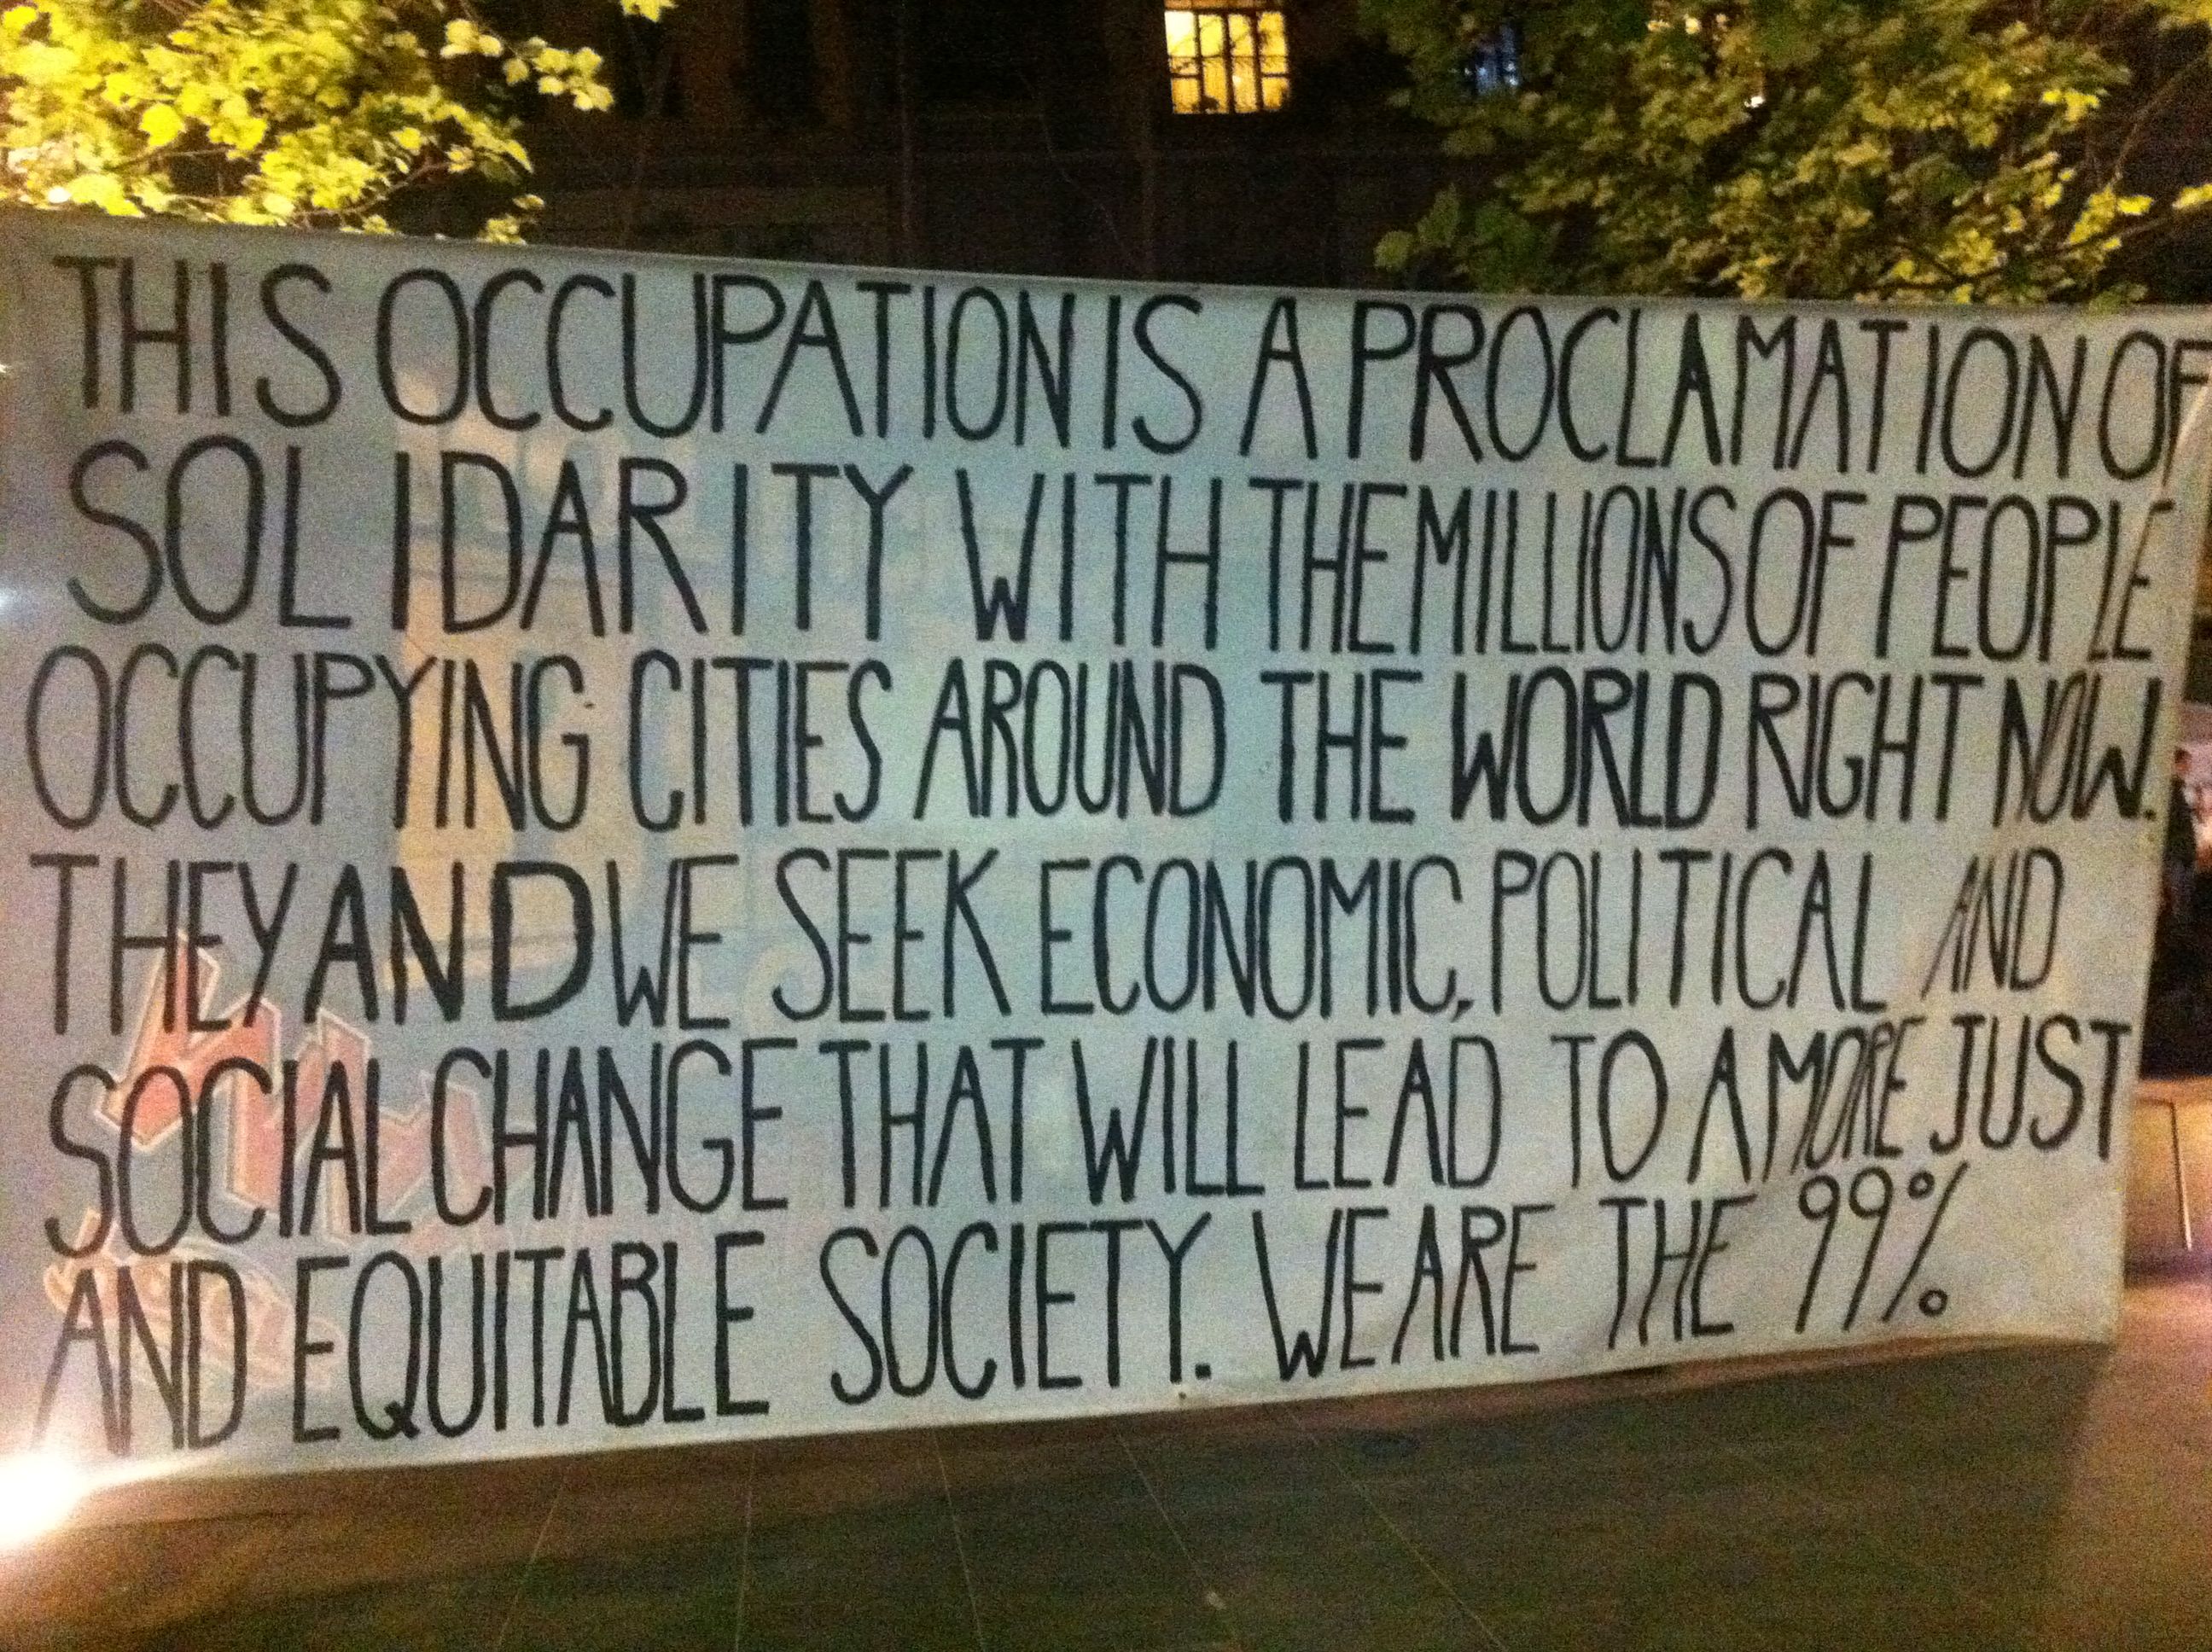 THIS OCCUPATION IS A PROCLAMATION OF
SOLIDARITY WITH THE MILLIONS OF PEOPLE
OCCUPYING CITIES AROUND THE WORLD RIGHT NOW.
THEY AND WE SEEK ECONOMIC, POLITICAL AND
SOCIAL CHANGE THAT WILL LEAD TO A MORE JUST
AND EQUITABLE SOCIETY. WE ARE THE 99%